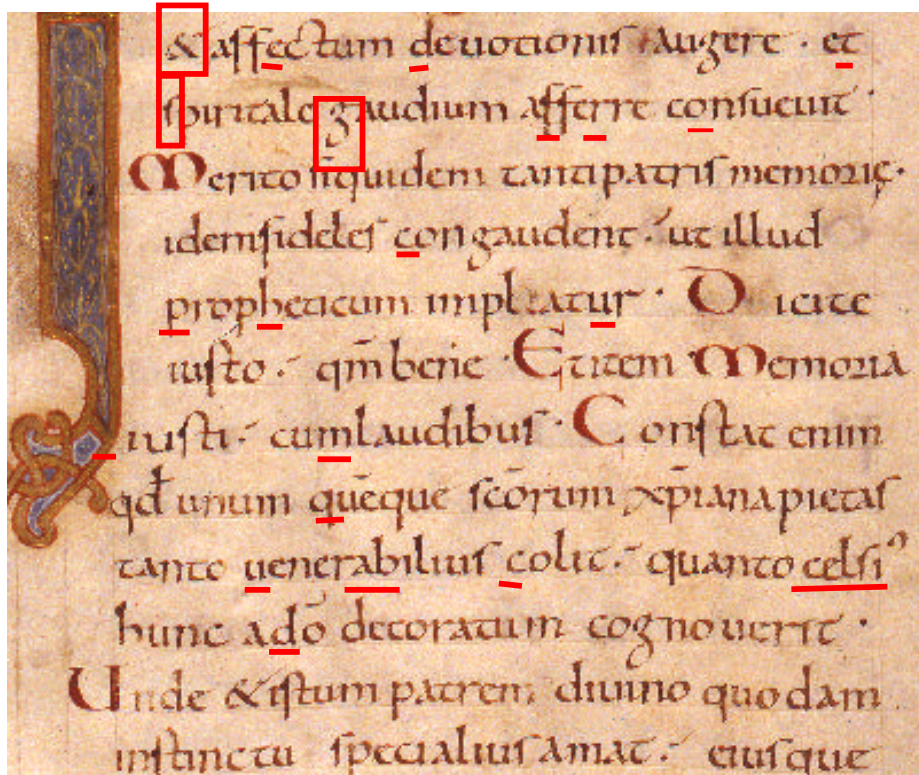 & affectum deuotionis augere · et
spiritale gaudium afferre consueuit ·
Merito n̄quidem tantipatris memorię ·
idemfideles congaudent · ut illud
propheticum impleatur · Dicite
iusto · qm̄ bene · Etitem Memoria
iusti · cumlaudibus · Constat enim
qd̄ unum quēque sc̄orum xp̄iana pietas
tanto uenerabilius colit · quanto celsi⁹
hunc ad̄o decoratum cognouerit ·
Unde & istum patrem diuino quodam
instinctu specialius amat · eiusque